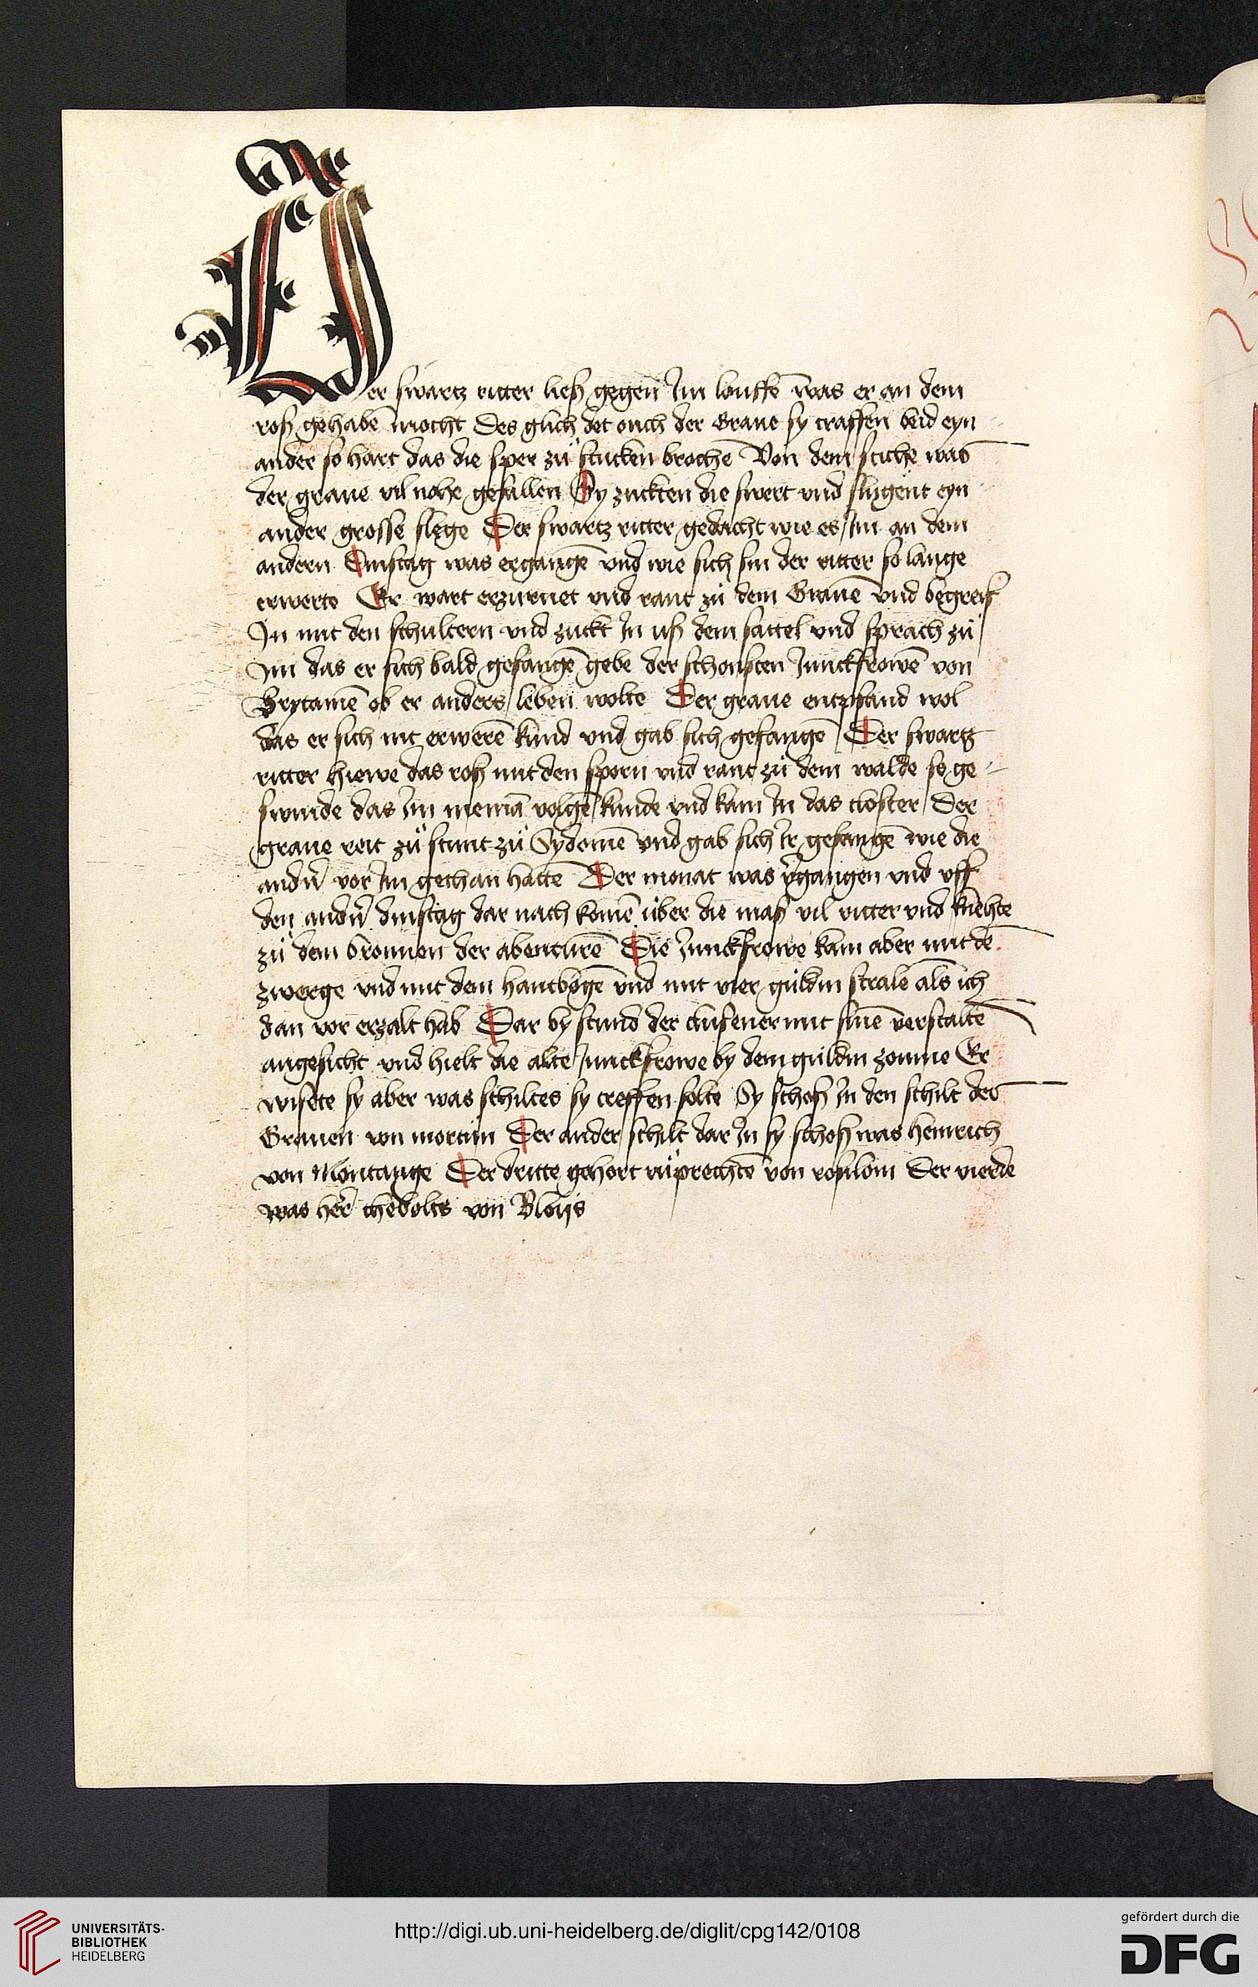 Der swartz ritter ließ gegen Im louffē was er an dem
roß gehabē mocht Des glich det ouch der Graue sy traffen beid eyn
ander so hart das die sper zů stucken brochē Von dem stiche was
der graue vil nohe gefallen Sy zuckten die swert vnd slugent eyn
ander grosse slege Der swartz ritter gedacht wie es Im an dem
andern Dinstag was ergangē vnd wie sich sin der ritter so lange
erwerte Er wart erzurnet vnd rant zů dem Grauē vnd begreif
In mit den schultern vnd zuckt In uß dem sattel vnd sprach zů
Im das er sich bald gefangē gebe der schonsten Junckfrowē von
Brytaniē ob er anders leben wolte Der graue entpfand wol
das er sich nit erwerē kund vnd gab sich gefangē Der swartz
ritter hiewe das roß mit den sporn vnd rant zů dem walde so ge
swinde das Im niemā volgē kunde vnd kam In das closter Der
graue reit zů stunt zů Sydoniē vnd gab sich Ir gefangē wie die
andn̄ vor Im gethan hattē Der monat was v̄gangen vnd vff
den andn̄ dinstag dar nach komē über die maß vil ritter vnd knehte
zů dem bronnen der abenturē Die Junckfrowe kam aber mit dē
zwerge vnd mit dem hantbogē vnd mit vier guldin strale als ich
dan vor erzalt hab Dar by stund der clusener mit sinē verstaltē
angesicht vnd hielt die alte Junckfrowe by dem guldin zoume Er
wisete sy aber was schiltes sy treffen solte Sy schoß In den schilt des
Grauen von mortim Der ander schilt dar In sy schoß was heinrich
von Montange Der dritte gehort růprechtē von roßlom Der vierde
was her̄ thebolts von Bloijs
UNIVERSITÄTS-
BIBLIOTHEK
HEIDELBERG
http://digi.ub.uni-heidelberg.de/diglit/cpg142/0108
gefördert durch die
DFG